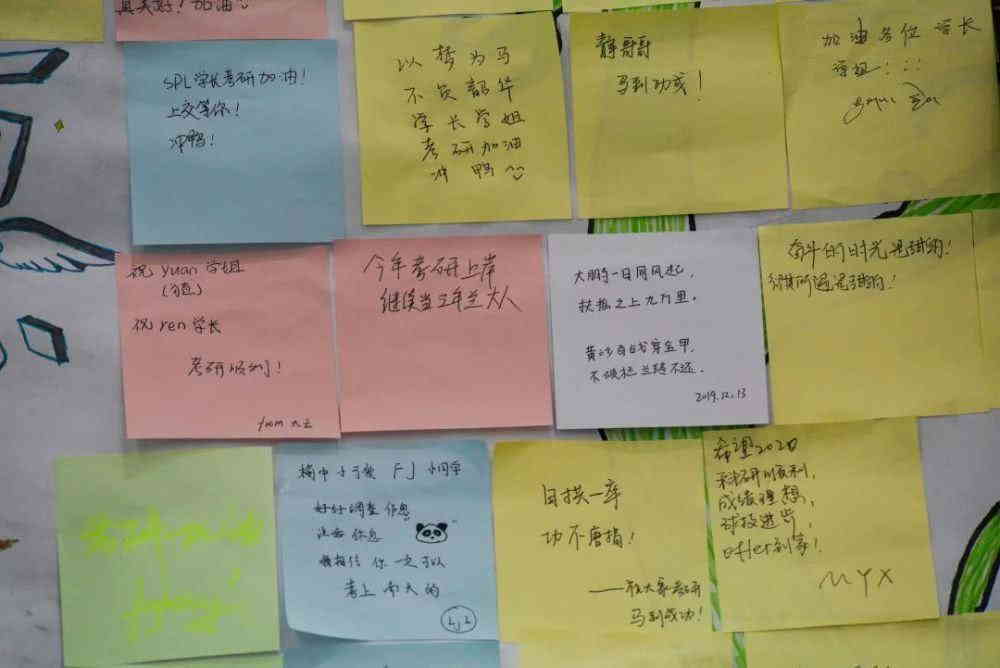 真美好！加油
SPL学长考研加油！
上交等你！
冲鸭！
以梦为马
不负韶华
学长学姐
考研加油
冲鸭
静哥哥
马到功成！
加油各位学长
学姐：：：
祝 yuan 学姐
祝 ren 学长
考研顺利！
from 大云
今年考研上岸
继续当三年兰大人
大鹏一日同风起，
扶摇之上九万里。
黄沙百战穿金甲，
不破楼兰终不还。
2019.12.13
奋斗的时光是甜的！
榆中 FJ 小同学
好好调整作息
注意休息
我相信你一定可以
考上南大的
LJL
日拱一卒
功不唐捐！
——祝大家考研
马到成功！
希望2020
科研顺利，
成绩理想，
球技进步，
offer到家！
MYX